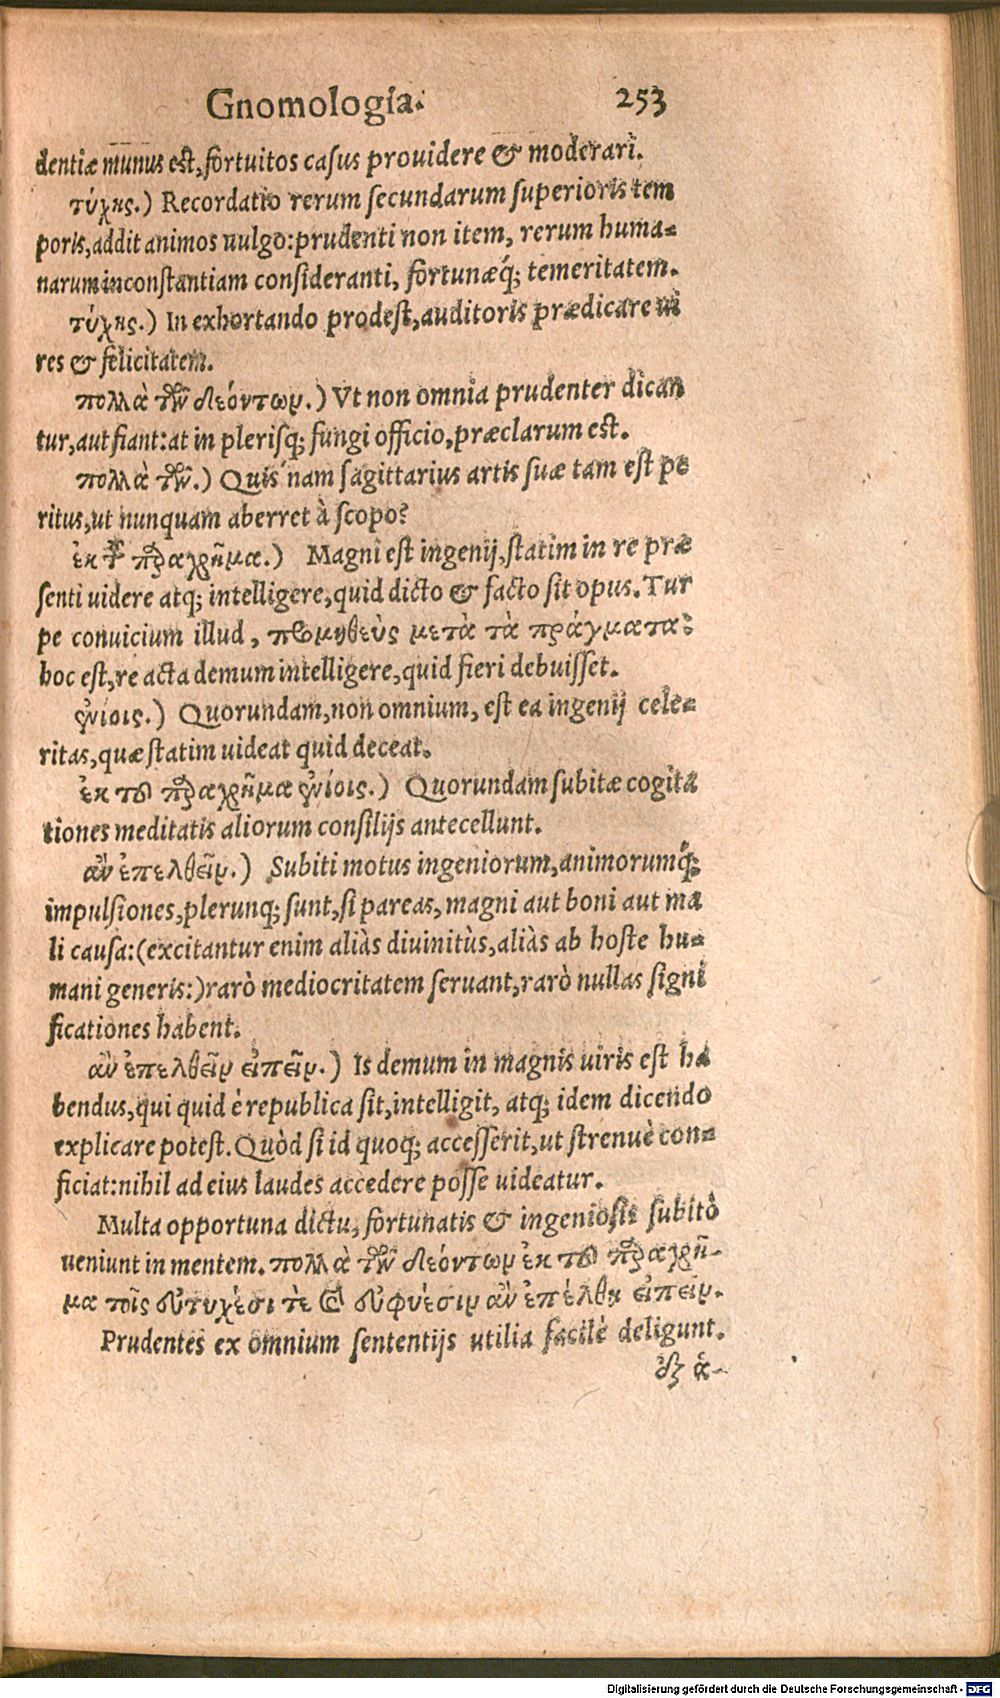 Gnomologia. 253
dentiæ munus est, fortuitos casus prouidere & moderari.
τύχης.) Recordatio rerum secundarum superioris tem
poris, addit animos uulgo: prudenti non item, rerum huma-
narum inconstantiam consideranti, fortunæq́; temeritatem.
τύχης.) In exhortando prodest, auditoris prædicare ui
res & felicitatem.
πολλὰ τῶν δεόντων.) Vt non omnia prudenter dican
tur, aut fiant: at in plerisq; fungi officio, præclarum est.
πολλὰ τῶν.) Quis nam sagittarius artis suæ tam est pe
ritus, ut nunquam aberret à scopo?
ἐκ τ παραχρῆμα.) Magni est ingenij, statim in re præ
senti uidere atq; intelligere, quid dicto & facto sit opus. Tur
pe conuicium illud, προμηθεὺς μετὰ τὰ πράγματα:
hoc est, re acta demum intelligere, quid fieri debuisset.
ἐνίοις.) Quorundam, non omnium, est ea ingenij cele-
ritas, quæ statim uideat quid deceat.
ἐκ τοῦ παραχρῆμα ἐνίοις.) Quorundam subitæ cogita
tiones meditatis aliorum consilijs antecellunt.
ἂν ἐπελθεῖν.) Subiti motus ingeniorum, animorumq́;
impulsiones, plerunq; sunt, si pareas, magni aut boni aut ma
li causa: (excitantur enim aliàs diuinitùs, aliàs ab hoste hu-
mani generis:) rarò mediocritatem seruant, rarò nullas signi
ficationes habent.
ἂν ἐπελθεῖν εἰπεῖν.) Is demum in magnis uiris est ha
bendus, qui quid è republica sit, intelligit, atq; idem dicendo
explicare potest. Quòd si id quoq; accesserit, ut strenuè con-
ficiat: nihil ad eius laudes accedere posse uideatur.
Multa opportuna dictu, fortunatis & ingeniosis subitò
ueniunt in mentem. πολλὰ τῶν δεόντων ἐκ τοῦ παραχρῆ-
μα τοῖς εὐτυχέσι τὲ καὶ εὐφυέσιν ἂν ἐπέλθῃ εἰπεῖν.
Prudentes ex omnium sententijs utilia facilè deligunt.
ἐξ ἁ-
Digitalisierung gefördert durch die Deutsche Forschungsgemeinschaft - DFG